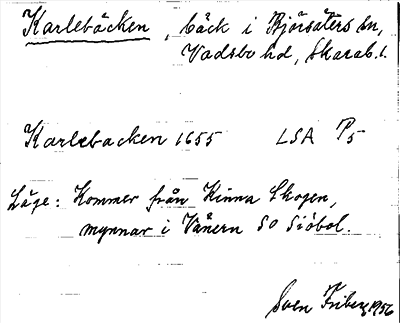 Karlebäcken, bäck i Björsäters sn,
Vadsbo hd, Skarab. l.
Karlebacken 1655 LSA P5
Läge: Kommer från Kinna Skogen,
mynnar i Vänern SO Sjöbol.
Sven Friberg 1956